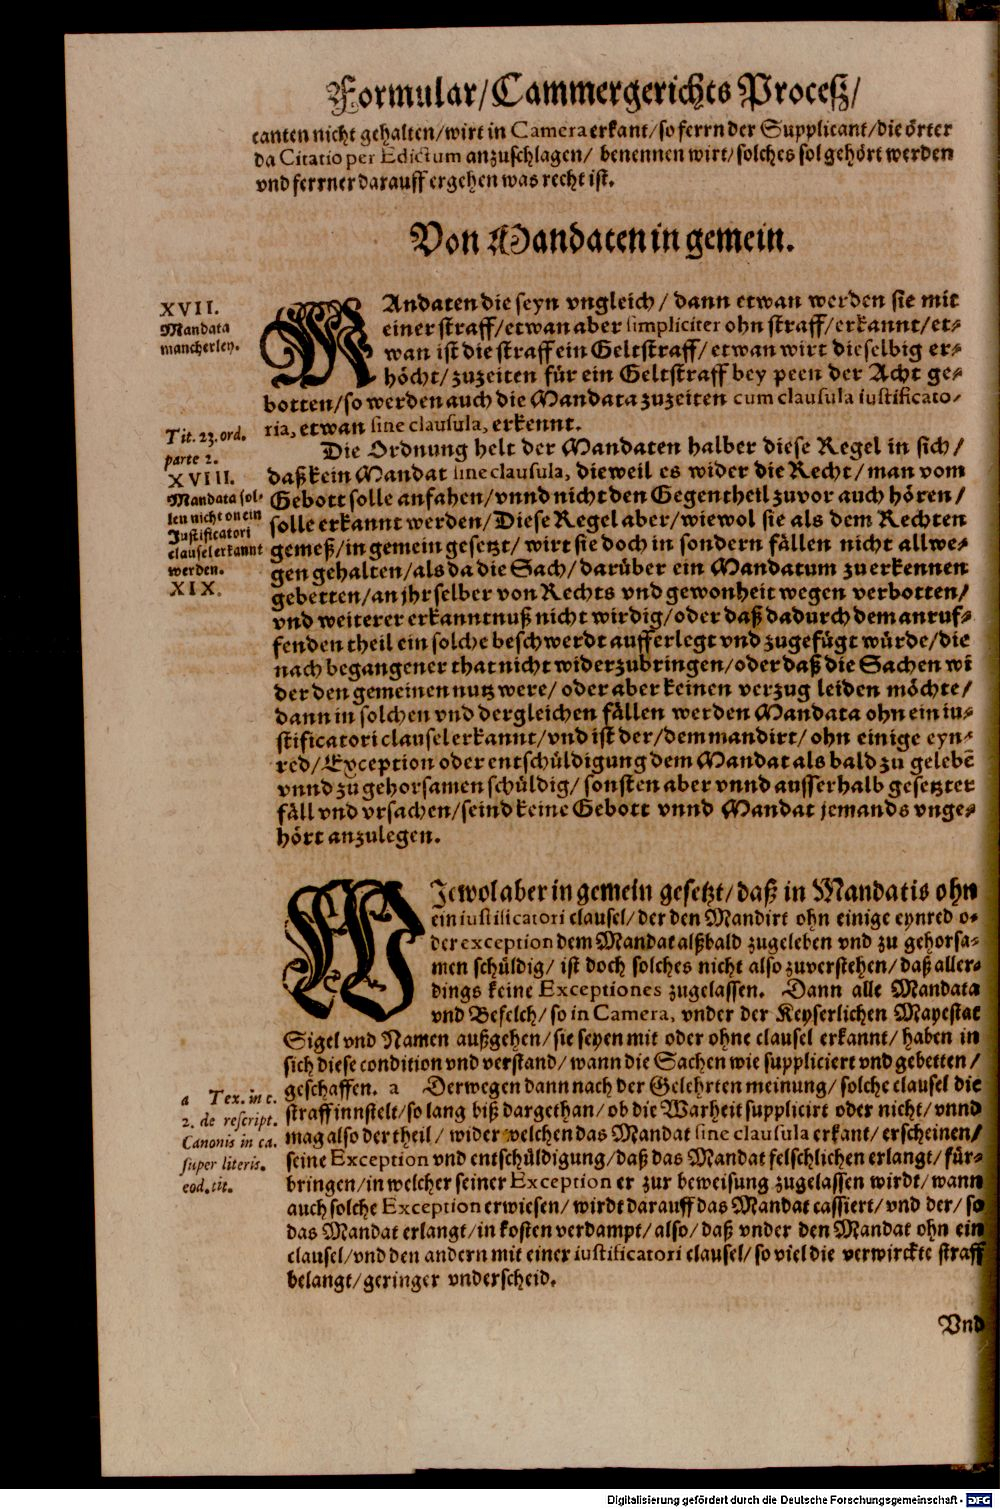 Formular/Cammergerichts Proceß/
canten nicht gehalten/wirt in Camera erkant/so ferrn der Supplicant/die örter
da Citatio per Edictum anzuschlagen/ benennen wirt/solches sol gehört werden
vnd ferrner darauff ergehen was recht ist.
Von Mandaten in gemein.
XVII.
Mandata
mancherley.
MAndaten die seyn vngleich/ dann etwan werden sie mit
einer straff/etwan aber simpliciter ohn straff/erkannt/et-
wan ist die straff ein Geltstraff/etwan wirt dieselbig er-
höcht/zuzeiten für ein Geltstraff bey peen der Acht ge-
botten/so werden auch die Mandata zuzeiten cum clausula iustificato-
ria, etwan sine clausula, erkennt.
Tit. 23. ord.
parte 2.
XVIII.
Mandata sol-
len nicht on ein
Justificatori
clausel erkannt
werden.
XIX.
Die Ordnung helt der Mandaten halber diese Regel in sich/
daß kein Mandat sine clausula, dieweil es wider die Recht/man vom
Gebott solle anfahen/vnnd nicht den Gegentheil zuvor auch hören/
solle erkannt werden/Diese Regel aber/wiewol sie als dem Rechten
gemeß/in gemein gesetzt/wirt sie doch in sondern fällen nicht allwe-
gen gehalten/als da die Sach/darüber ein Mandatum zu erkennen
gebetten/an jhr selber von Rechts vnd gewonheit wegen verbotten/
vnd weiterer erkanntnuß nicht wirdig/oder daß dadurch dem anruf-
fenden theil ein solche beschwerdt aufferlegt vnd zugefügt würde/die
nach begangener that nicht widerzubringen/oder daß die Sachen wi
der den gemeinen nutz were/oder aber keinen verzug leiden möchte/
dann in solchen vnd dergleichen fällen werden Mandata ohn ein iu-
stificatori clausel erkannt/vnd ist der/dem mandirt/ohn einige eyn-
red/Exception oder entschüldigung dem Mandat als bald zu gelebē
vnnd zu gehorsamen schüldig/sonsten aber vnnd ausserhalb gesetzter
fäll vnd vrsachen/seind keine Gebott vnnd Mandat jemands vnge-
hört anzulegen.
WIewol aber in gemein gesetzt/daß in Mandatis ohn
ein iustificatori clausel/der den Mandirt ohn einige eynred o-
der exception dem Mandat alßbald zugeleben vnd zu gehorsa-
men schüldig/ ist doch solches nicht also zuverstehen/daß aller-
dings keine Exceptiones zugelassen. Dann alle Mandata
vnd Befelch/so in Camera, vnder der Keyserlichen Mayestat
Sigel vnd Namen außgehen/sie seyen mit oder ohne clausel erkannt/haben in
sich diese condition vnd verstand/wann die Sachen wie suppliciert vnd gebetten/
geschaffen. a Derwegen dann nach der Gelehrten meinung/solche clausel die
straff innstelt/so lang biß dargethan/ob die Warheit supplicirt oder nicht/vnnd
mag also der theil/ wider welchen das Mandat sine clausula erkant/erscheinen/
seine Exception vnd entschüldigung/daß das Mandat felschlichen erlangt/für-
bringen/in welcher seiner Exception er zur beweisung zugelassen wirdt/wann
auch solche Exception erwiesen/wirdt darauff das Mandat cassiert/vnd der/so
das Mandat erlangt/in kosten verdampt/also/daß vnder den Mandat ohn ein
clausel/vnd den andern mit einer iustificatori clausel/so viel die verwirckte straff
belangt/geringer vnderscheid.
a Tex. in c.
2. de rescript.
Canonis in ca.
super literis.
eod. tit.
Vnd
Digitalisierung gefördert durch die Deutsche Forschungsgemeinschaft - DFG